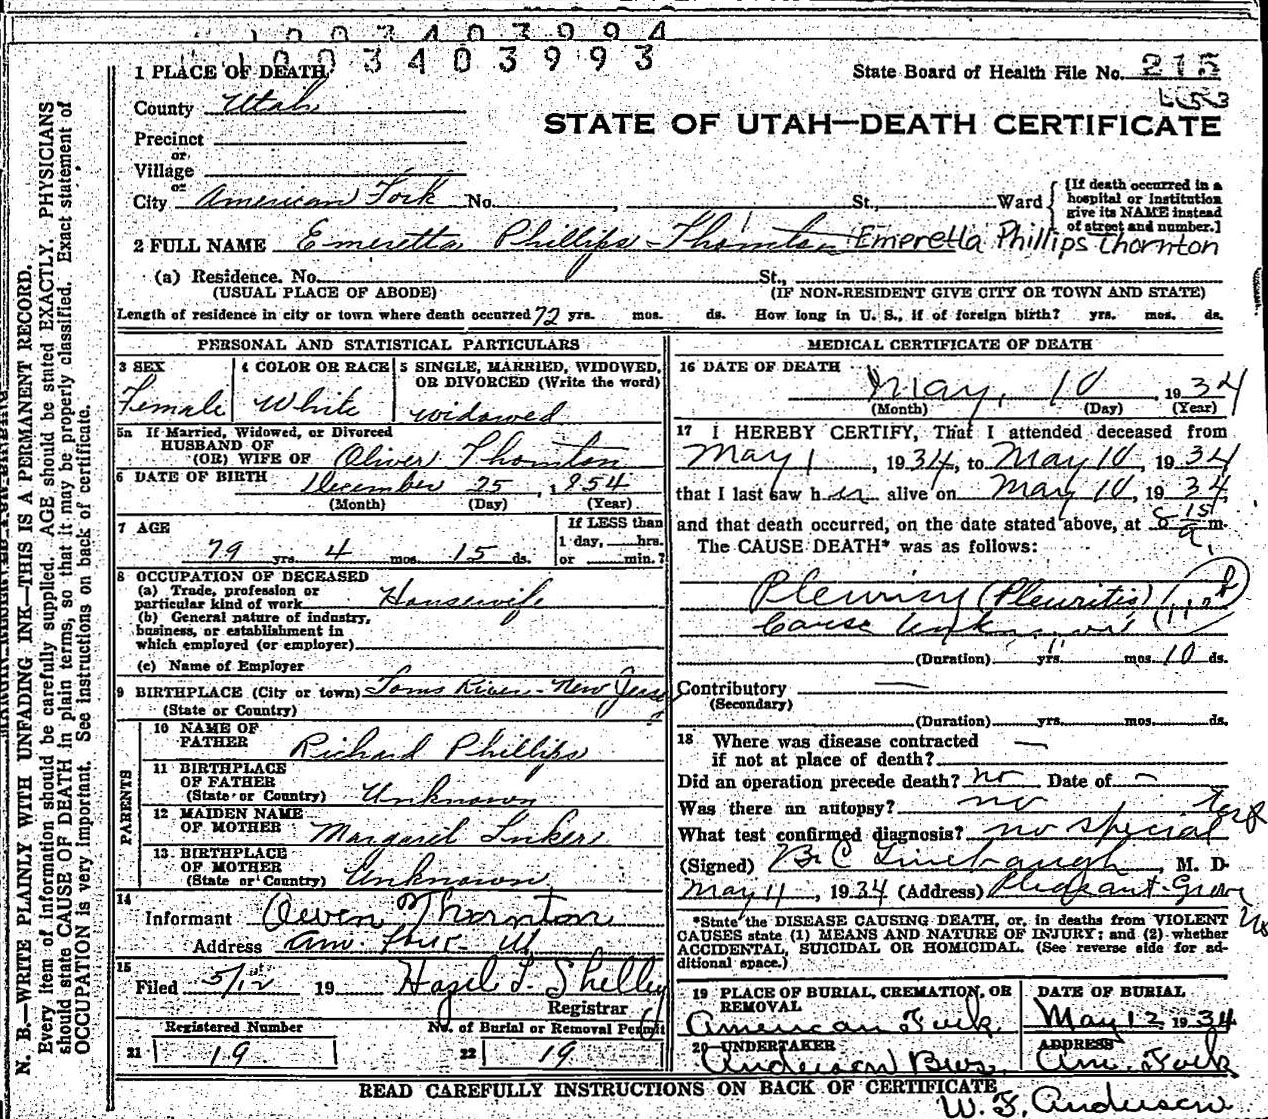 1003403994
1003403993
1 PLACE OF DEATH
State Board of Health File No. 215
County Utah
STATE OF UTAH—DEATH CERTIFICATE
Precinct
or
Village
or
City American Fork No. , St., Ward
[If death occurred in a hospital or institution give its NAME instead of street and number.]
2 FULL NAME Emeretta Phillips Thornton Emeretta Phillips Thornton
(a) Residence. No. St.,
(USUAL PLACE OF ABODE) (IF NON-RESIDENT GIVE CITY OR TOWN AND STATE)
Length of residence in city or town where death occurred 72 yrs. mos. ds. How long in U. S., if of foreign birth? yrs. mos. ds.
PERSONAL AND STATISTICAL PARTICULARS
3 SEX Female
4 COLOR OR RACE White
5 SINGLE, MARRIED, WIDOWED, OR DIVORCED (Write the word) Widowed
5a If Married, Widowed, or Divorced
HUSBAND OF
(OR) WIFE OF Oliver Thornton
6 DATE OF BIRTH December 25, 1854
(Month) (Day) (Year)
7 AGE 79 yrs. 4 mos. 15 ds.
If LESS than
1 day, hrs.
or min.?
8 OCCUPATION OF DECEASED
(a) Trade, profession or
particular kind of work Housewife
(b) General nature of industry,
business, or establishment in
which employed (or employer)
(c) Name of Employer
9 BIRTHPLACE (City or town) Toms River - New Jersey
(State or Country)
PARENTS
10 NAME OF
FATHER Richard Phillips
11 BIRTHPLACE
OF FATHER
(State or Country) Unknown
12 MAIDEN NAME
OF MOTHER Margaret
13 BIRTHPLACE
OF MOTHER
(State or Country) Unknown
14
Informant Owen Thornton
Address Am. Fork Ut
15
Filed 5/12 19 Hazel L. Shelley
Registrar
Registered Number
21 19
No. of Burial or Removal Permit
22 19
MEDICAL CERTIFICATE OF DEATH
16 DATE OF DEATH May, 10, 1934
(Month) (Day) (Year)
17 I HEREBY CERTIFY, That I attended deceased from
May 1, 1934, to May 10, 1934
that I last saw her alive on May 10, 1934,
and that death occurred, on the date stated above, at 15 a. m.
The CAUSE DEATH* was as follows:
Pleurisy (Pleuritis)
Cause Unknown
(Duration) yrs. mos. 10 ds.
Contributory —
(Secondary)
(Duration) yrs. mos. ds.
18 Where was disease contracted
if not at place of death? —
Did an operation precede death? no Date of —
Was there an autopsy? no
What test confirmed diagnosis? no special test
(Signed) B. C. Linebaugh, M. D.
May 11, 1934 (Address) Pleasant Grove
*State the DISEASE CAUSING DEATH, or, in deaths from VIOLENT
CAUSES state (1) MEANS AND NATURE OF INJURY; and (2) whether
ACCIDENTAL, SUICIDAL OR HOMICIDAL. (See reverse side for ad-
ditional space.)
19 PLACE OF BURIAL, CREMATION, OR
REMOVAL
American Fork
DATE OF BURIAL
May 12 1934
20 UNDERTAKER
Anderson Bros.
ADDRESS
Am. Fork
READ CAREFULLY INSTRUCTIONS ON BACK OF CERTIFICATE
W. F. Anderson
N. B.—WRITE PLAINLY WITH UNFADING INK—THIS IS A PERMANENT RECORD.
Every item of information should be carefully supplied. AGE should be stated EXACTLY. PHYSICIANS
should state CAUSE OF DEATH in plain terms, so that it may be properly classified. Exact statement of
OCCUPATION is very important. See instructions on back of certificate.